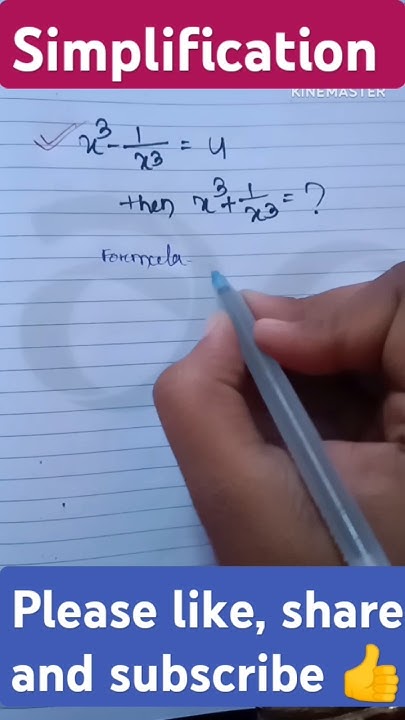 Simplification
KINEMASTER
x³ - 1/x³ = 4
then x³ + 1/x³ = ?
Formula
Please like, share
and subscribe 👍